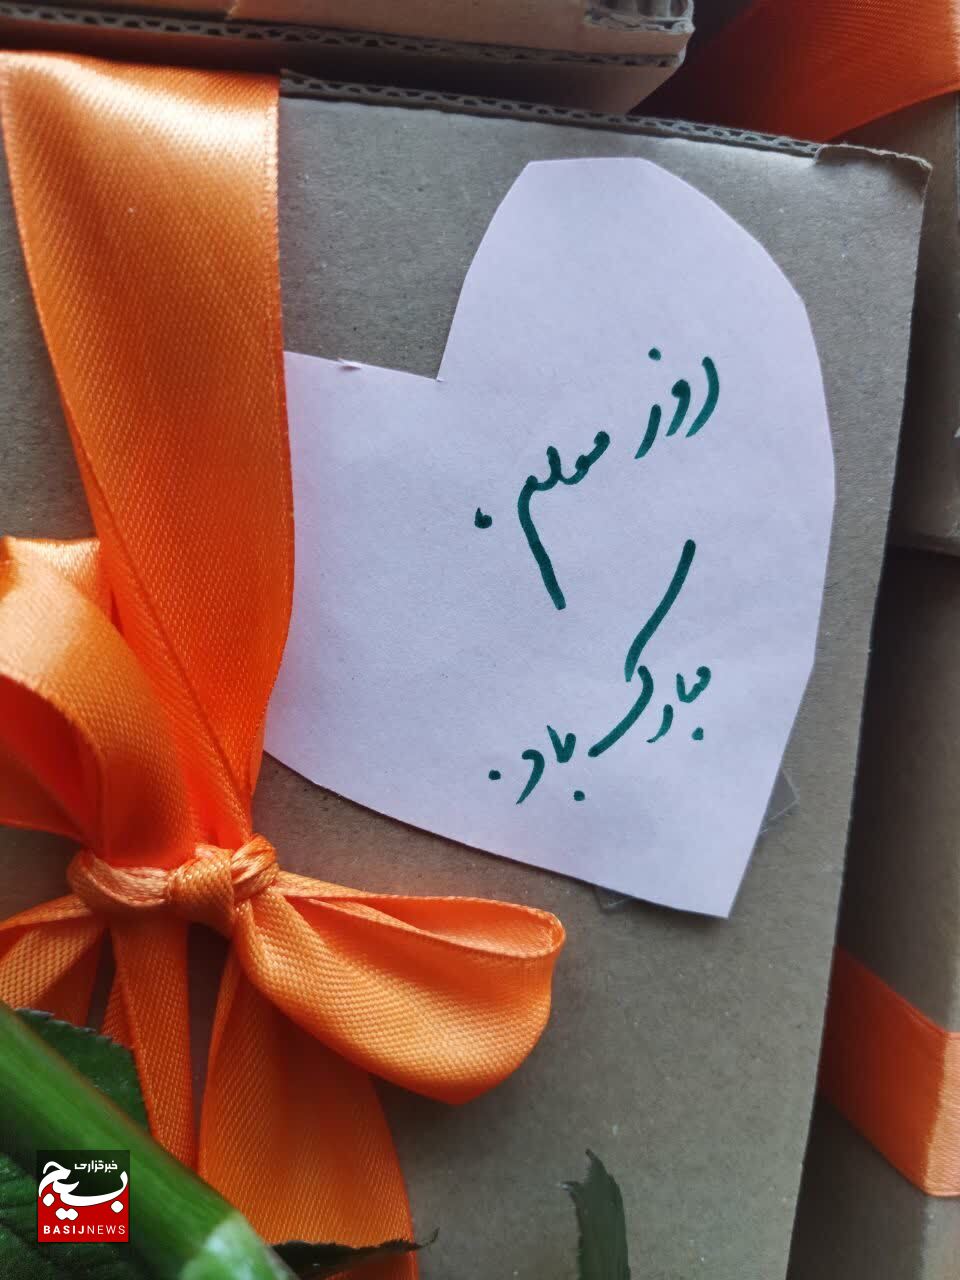 روز معلم
مبارک باد.
خبرگزاری
بسیج
BASIJNEWS